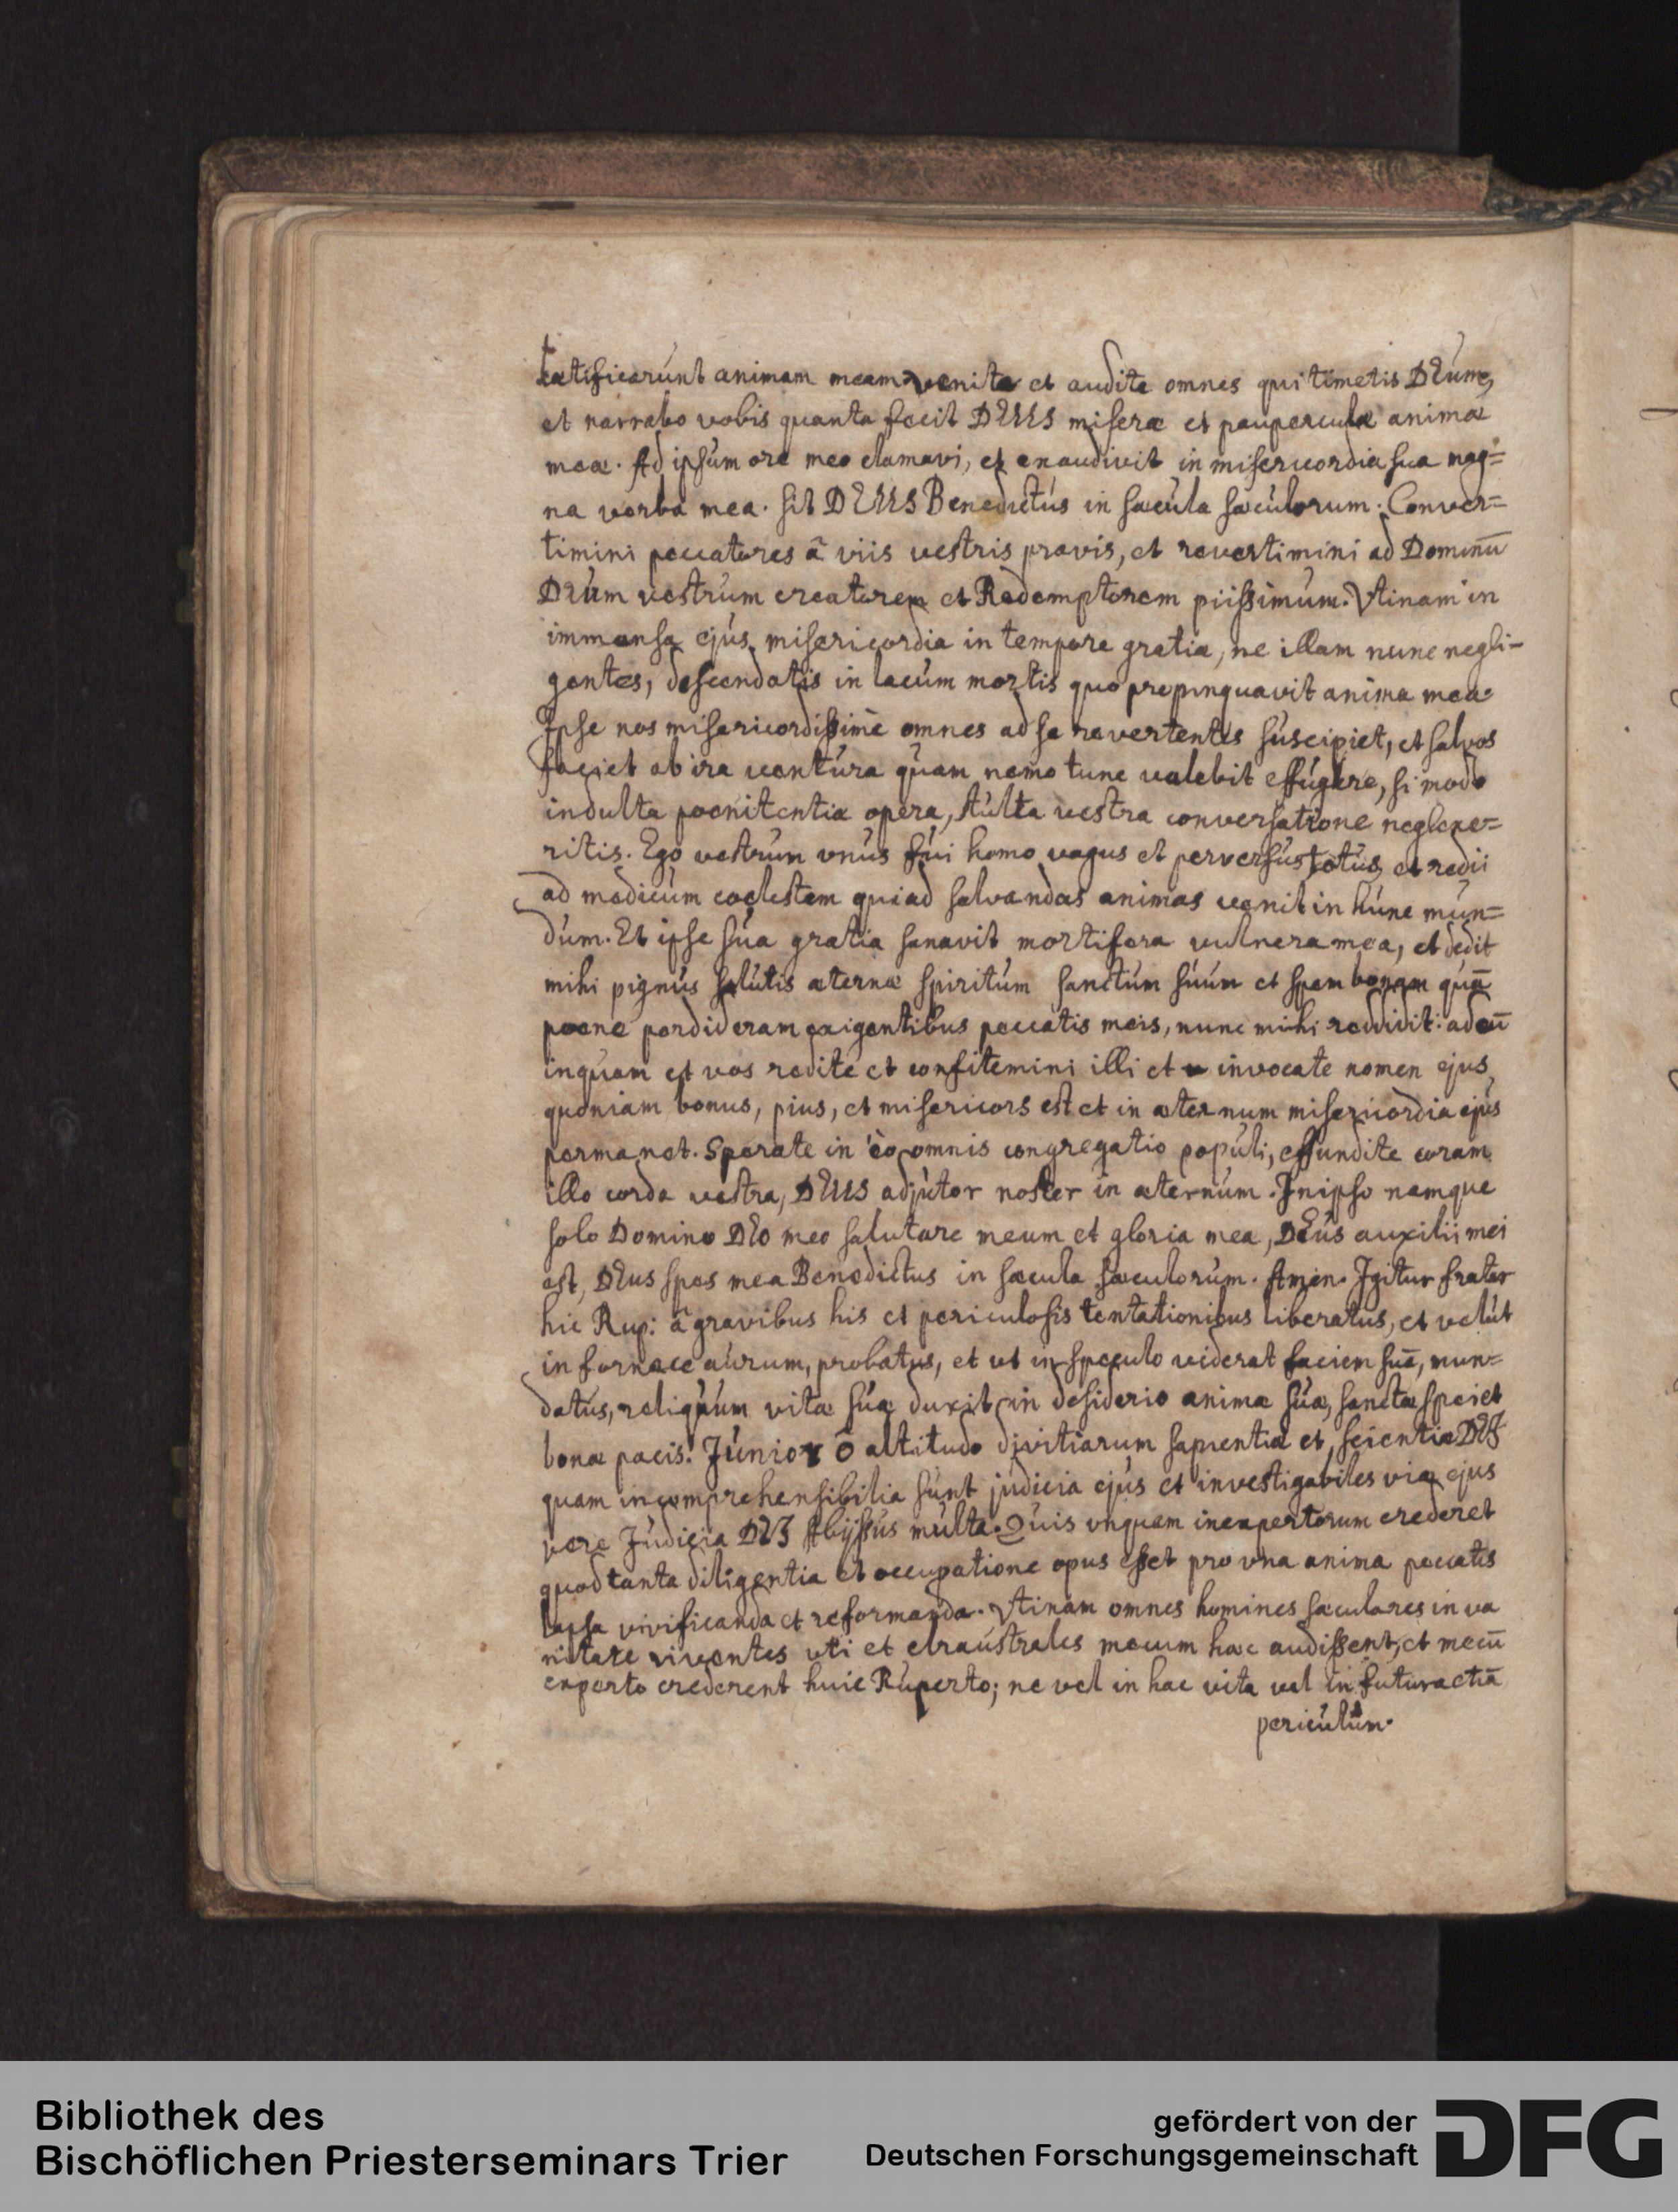 lætificarunt animam meam venite et audite omnes qui timetis DEúm,
et narrabo vobis quanta fecit DEUS miseræ et pauperculæ animæ
meæ. Ad ipsúm ore meo clamavi, et exaudivit in misericordia sua mag=
na verba mea. sit DEUS Benedictús in sæcúla sæcúlorum. Conver=
timini peccatores â viis vestris pravis, et revertimini ad Dominū
DEúm vestrum creatorem et Redemptorem piissimum. Vtinam in
immensa ejús misericordia in tempore gratiæ, ne illam nunc negli-
gentes, descendatis in lacúm mortis quo propinquavit anima mea.
Ipse nos misericordissimè omnes ad se revertentes súscipiet, et salvos
faciet ab ira ventúra qúam nemo tunc valebit effúgere, si modo
indulta poenitentiæ opera, stúlta vestra conversatione neglexe=
ritis. Ego vestrúm vnús fúi homo vagus et perversús totús, et redii
ad medicúm coelestem qui ad salvandas animas venit in húnc mún=
dúm. Et ipse súa gratia sanavit mortifera vulnera mea, et dedit
mihi pignús salútis æternæ spiritúm sanctúm súúm et spem bonam quā
poene perdideram exigentibus peccatis meis, nunc mihi reddidit: ad eū
inquam et vos redite et confitemini illi et invocate nomen ejus,
quoniam bonus, pius, et misericors est et in æternum misericordia ejús
permanet. Sperate in eo omnis congregatio popúli, effundite coram
illo corda vestra, DEUS adjútor noster in æternúm. In ipso namque
solo Domino DEo meo salutare meum et gloria mea, DEús auxilii mei
est, DEus spes mea Benedictus in sæcula sæculorúm. Amen. Igitur frater
hic Rup: â gravibus his et periculosis tentationibus liberatus, et velút
in fornace aúrum, probatus, et ut in specúlo viderat faciem suā, mun=
datús, reliqúúm vitæ súæ duxit in desiderio animæ súæ, sanctæ spei et
bonæ pacis. Júnior ô altitudo divitiarum sapientiæ et, scientiæ DEI
quam incomprehensibilia súnt júdicia ejús et investigabiles viæ ejus
vere Júdicia DEI Abijssús múlta. Quis vnquam inexpertorum crederet
quod tanta diligentia et occupatione opus esset pro vna anima peccatis
lapsa vivificanda et reformanda. Vtinam omnes homines sæculares in va
nitate viventes uti et claústrales mecum hæc audissent, et mecū
experto crederent huic Rúperto; ne vel in hac vita vel in futura etiā
pericúlúm.
Bibliothek des
Bischöflichen Priesterseminars Trier
gefördert von der
Deutschen Forschungsgemeinschaft
DFG